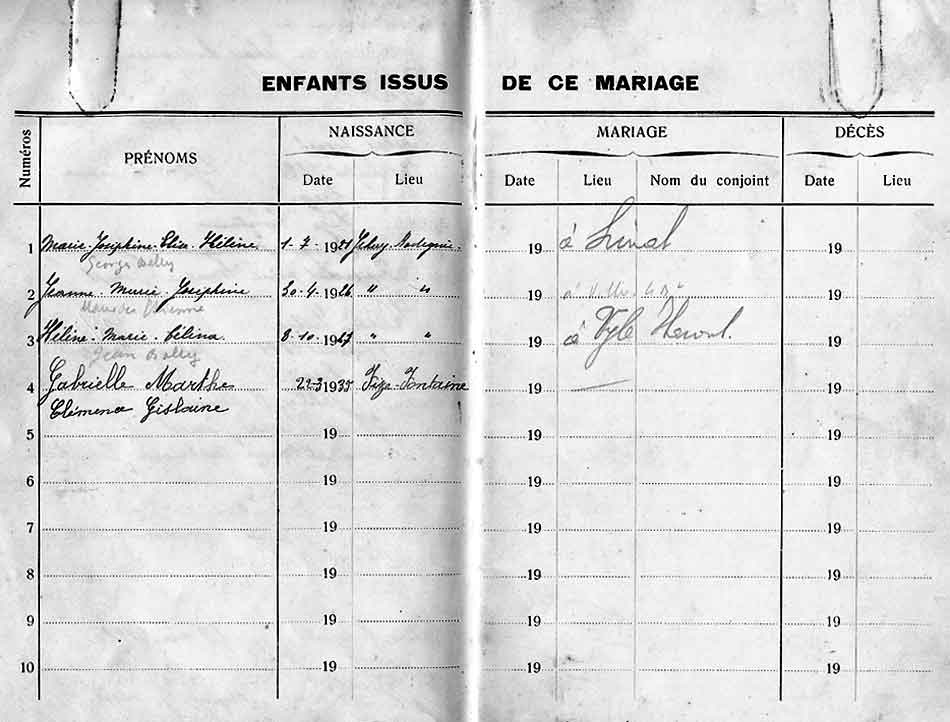 ENFANTS ISSUS DE CE MARIAGE
Numéros PRÉNOMS NAISSANCE MARIAGE DÉCÈS
Date Lieu Date Lieu Nom du conjoint Date Lieu
1 Marie. Joséphine. Elisa. Hélène 1-7-19 19 à 19
Georges
2 Jeanne. Marie. Joséphine 30-4-1926 " " 19 à 19
Maurice
3 Hélène. Marie. Célina. 8-10-1927 " " 19 à Vyle 19
Jean
4 Gabrielle Marthe 22-3 1935 Fize-Fontaine 19 — 19
Clémence Gislaine
5 19 19 19
6 19 19 19
7 19 19 19
8 19 19 19
9 19 19 19
10 19 19 19